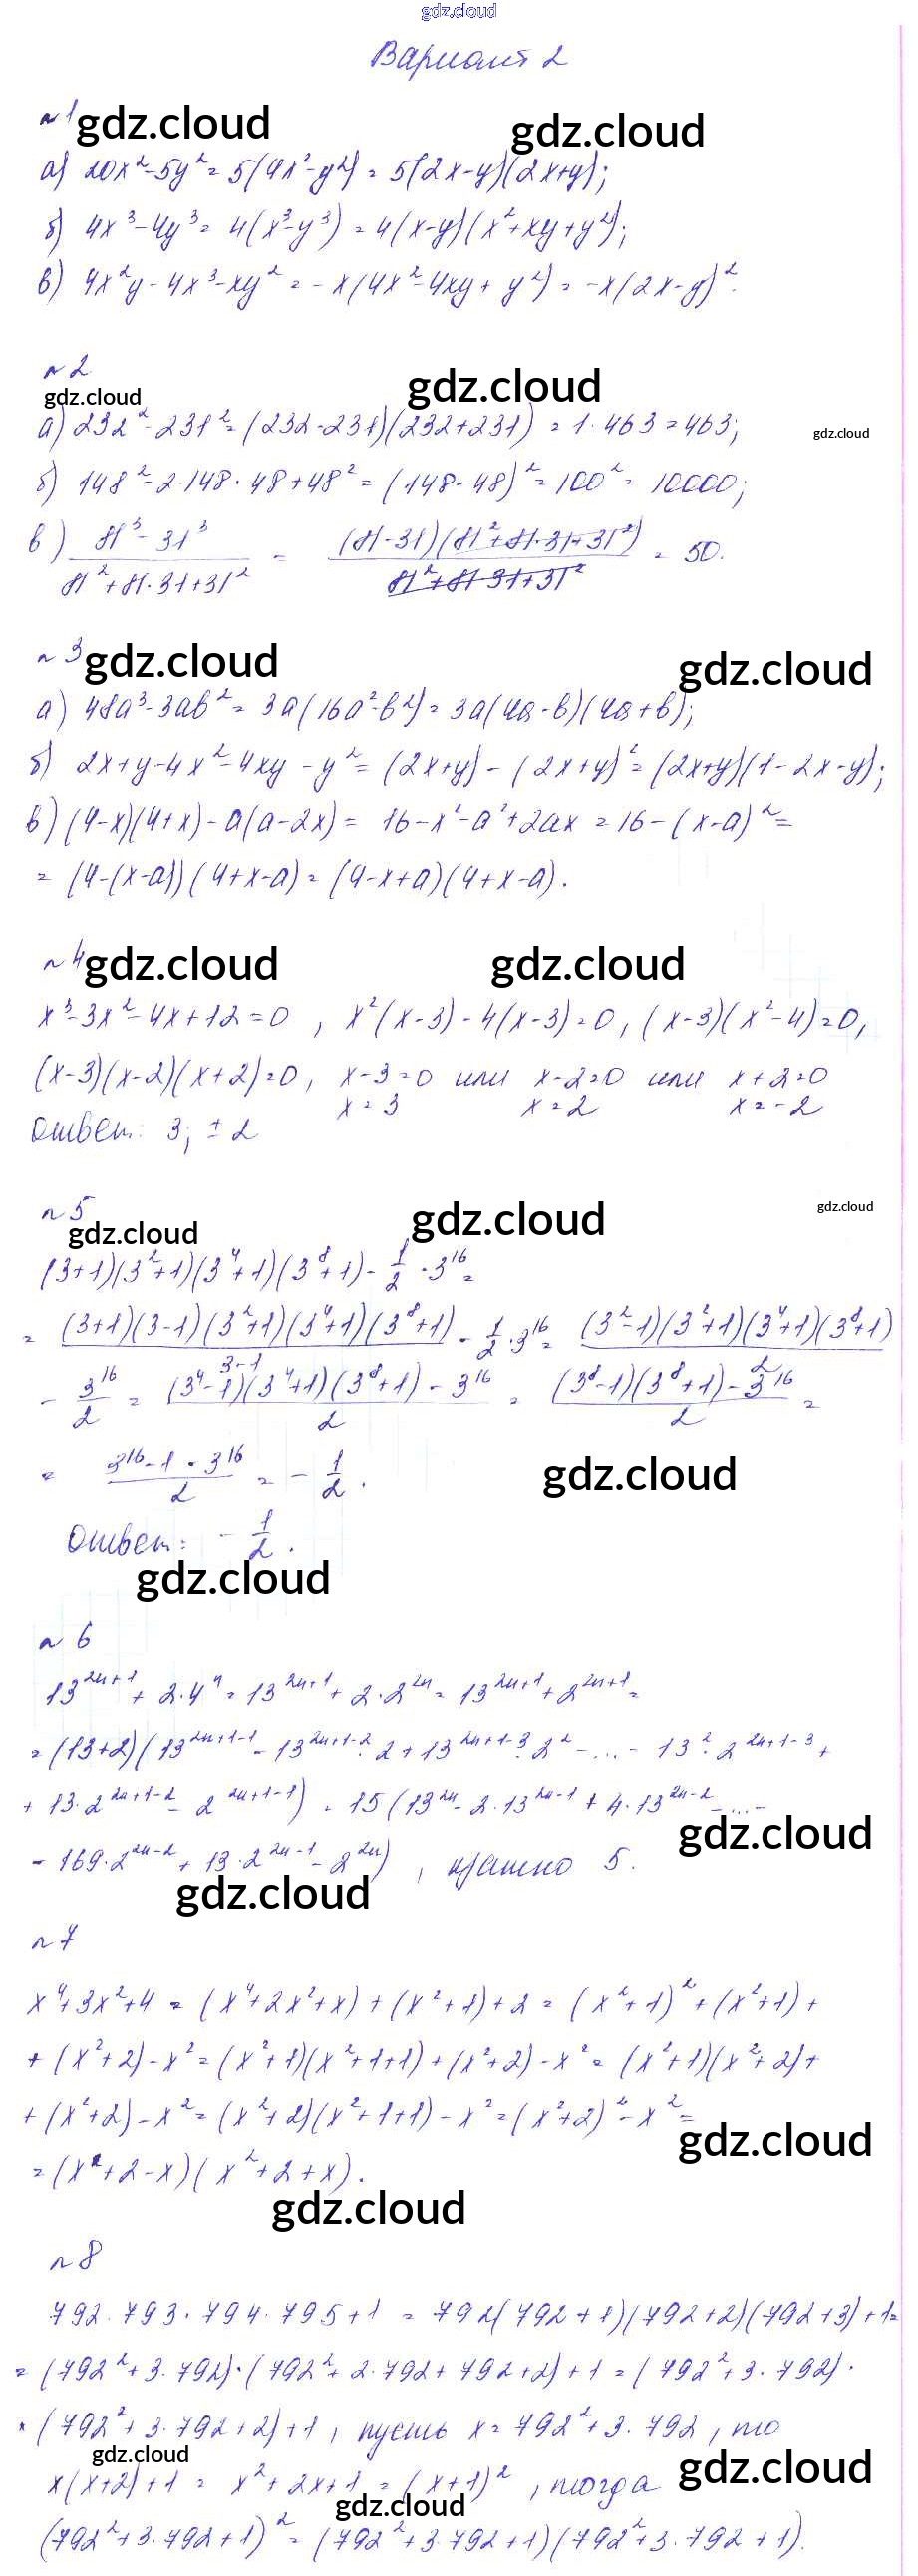 gdz.cloud
Вариант 2
№1 gdz.cloud gdz.cloud
а) 20x² - 5y² = 5(4x² - y²) = 5(2x-y)(2x+y);
б) 4x³ - 4y³ = 4(x³ - y³) = 4(x-y)(x² + xy + y²);
в) 4x²y - 4x³ - xy² = -x(4x² - 4xy + y²) = -x(2x-y)².
№2
gdz.cloud gdz.cloud
а) 232² - 231² = (232-231)(232+231) = 1·463 = 463; gdz.cloud
б) 148² - 2·148·48 + 48² = (148-48)² = 100² = 10000;
в) (81³ - 31³)/(81² + 81·31 + 31²) = ((81-31)(81² + 81·31 + 31²))/(81² + 81·31 + 31²) = 50.
№3 gdz.cloud gdz.cloud
а) 48a³ - 3ab² = 3a(16a² - b²) = 3a(4a-b)(4a+b);
б) 2x+y-4x²-4xy-y² = (2x+y) - (2x+y)² = (2x+y)(1-2x-y);
в) (4-x)(4+x) - a(a-2x) = 16-x²-a²+2ax = 16-(x-a)² =
= (4-(x-a))(4+x-a) = (4-x+a)(4+x-a).
№4 gdz.cloud gdz.cloud
x³-3x²-4x+12=0, x²(x-3)-4(x-3)=0, (x-3)(x²-4)=0,
(x-3)(x-2)(x+2)=0, x-3=0 или x-2=0 или x+2=0
x=3 x=2 x=-2
Ответ: 3; ±2
№5
gdz.cloud gdz.cloud gdz.cloud
(3+1)(3²+1)(3⁴+1)(3⁸+1) - 1/2 · 3¹⁶ =
= ((3+1)(3-1)(3²+1)(3⁴+1)(3⁸+1))/(3-1) - 1/2 · 3¹⁶ = ((3²-1)(3²+1)(3⁴+1)(3⁸+1))/2
- 3¹⁶/2 = ((3⁴-1)(3⁴+1)(3⁸+1) - 3¹⁶)/2 = ((3⁸-1)(3⁸+1) - 3¹⁶)/2 =
= (3¹⁶ - 1 - 3¹⁶)/2 = - 1/2. gdz.cloud
Ответ: - 1/2.
gdz.cloud
№6
13²ⁿ⁺¹ + 2·4ⁿ = 13²ⁿ⁺¹ + 2·2²ⁿ = 13²ⁿ⁺¹ + 2²ⁿ⁺¹ =
= (13+2)(13²ⁿ⁺¹⁻¹ - 13²ⁿ⁺¹⁻²·2 + 13²ⁿ⁺¹⁻³·2² - ... - 13²·2²ⁿ⁺¹⁻³ +
+ 13·2²ⁿ⁺¹⁻² - 2²ⁿ⁺¹⁻¹) = 15(13²ⁿ - 2·13²ⁿ⁻¹ + 4·13²ⁿ⁻² - ... -
gdz.cloud
- 169·2²ⁿ⁻² + 13·2²ⁿ⁻¹ - 2²ⁿ), кратно 5.
gdz.cloud
№7
x⁴+3x²+4 = (x⁴+2x²+x) + (x²+1) + 2 = (x²+1)² + (x²+1) +
+ (x²+2) - x² = (x²+1)(x²+1+1) + (x²+2) - x² = (x²+1)(x²+2) +
+ (x²+2) - x² = (x²+2)(x²+1+1) - x² = (x²+2)² - x² =
gdz.cloud
= (x²+2-x)(x²+2+x).
gdz.cloud
№8
792·793·794·795+1 = 792(792+1)(792+2)(792+3)+1=
= (792²+3·792)·(792²+2·792+792+2)+1 = (792²+3·792)·
× (792²+3·792+2)+1, пусть x = 792²+3·792, то
gdz.cloud gdz.cloud
x(x+2)+1 = x²+2x+1 = (x+1)², тогда
gdz.cloud
(792²+3·792+1)² = (792²+3·792+1)(792²+3·792+1).